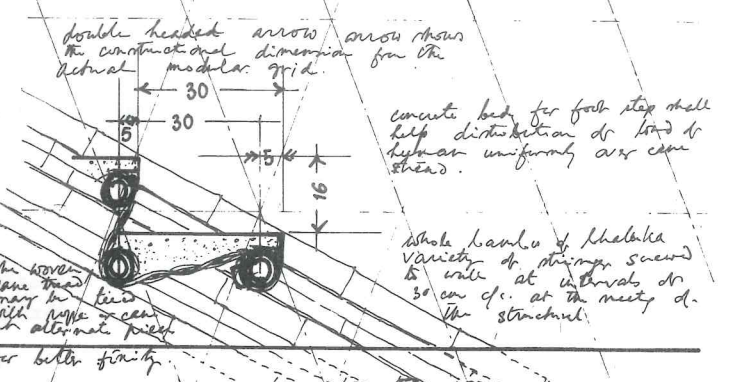 double headed arrow arrow shows
the constructional dimension from the
actual modular grid.
30
30
5
5
16
concrete body for foot step shall
help distribution of load of
human uniformly over cane
whole bamboo of
variety of stringer screwed
to at intervals of
30 cm c/c. at the of
the structural
woven
may be tied
with rope or cane
at alternate
for better